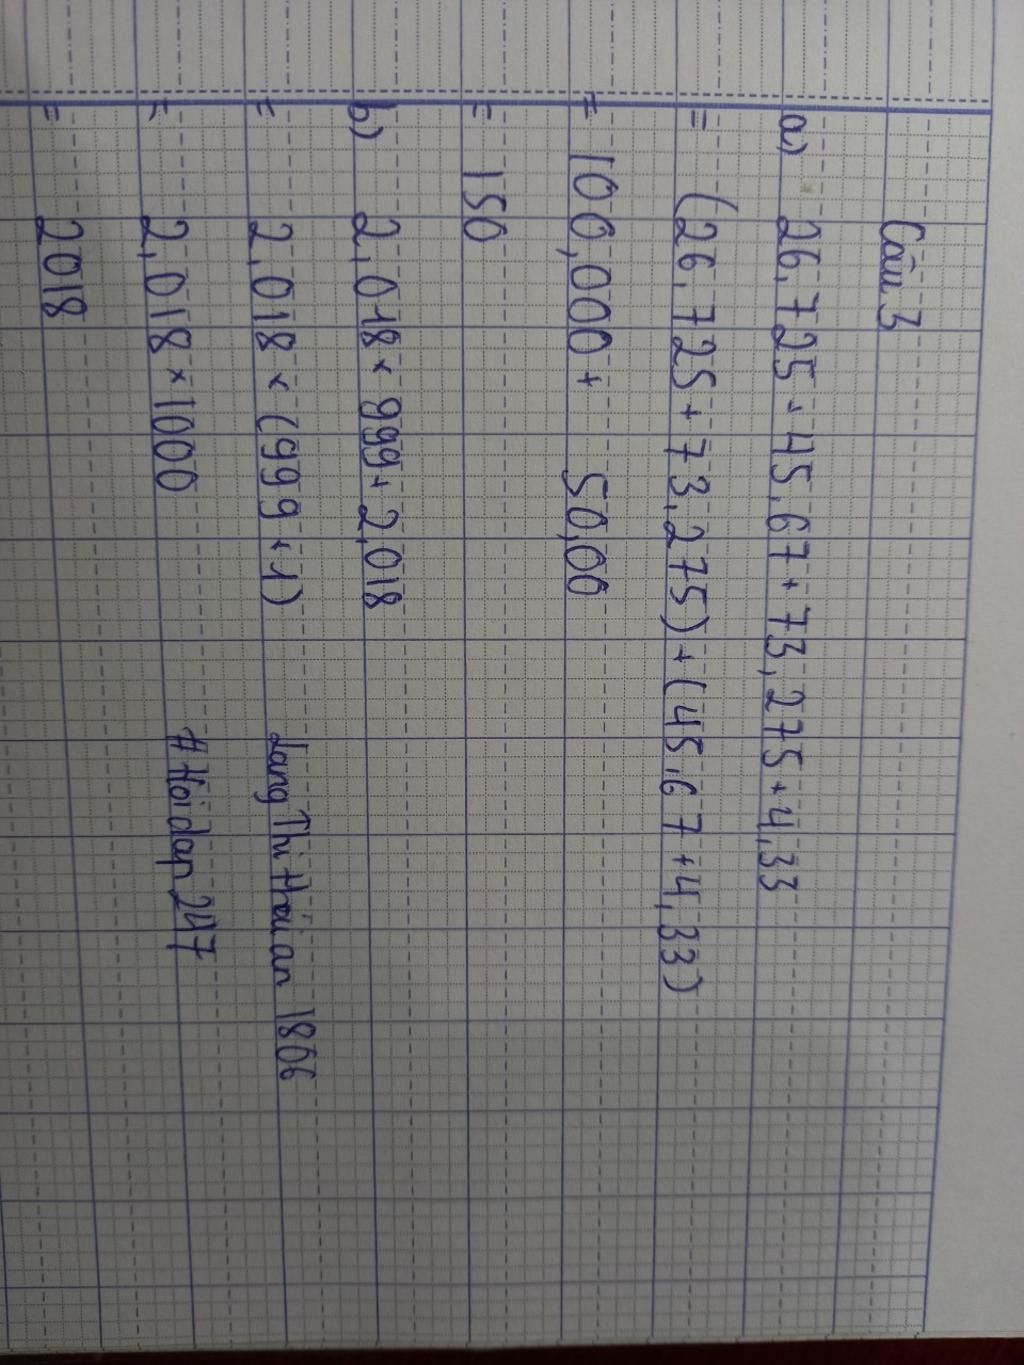 Câu 3
a) 26,725 + 45,67 + 73,275 + 4,33
= (26,725 + 73,275) + (45,67 + 4,33)
= 100,000 + 50,00
= 150
b) 2,018 × 999 + 2,018
= 2,018 × (999 + 1)
= 2,018 × 1000
= 2018
dang Thi thai an 1866
#Hoidap247